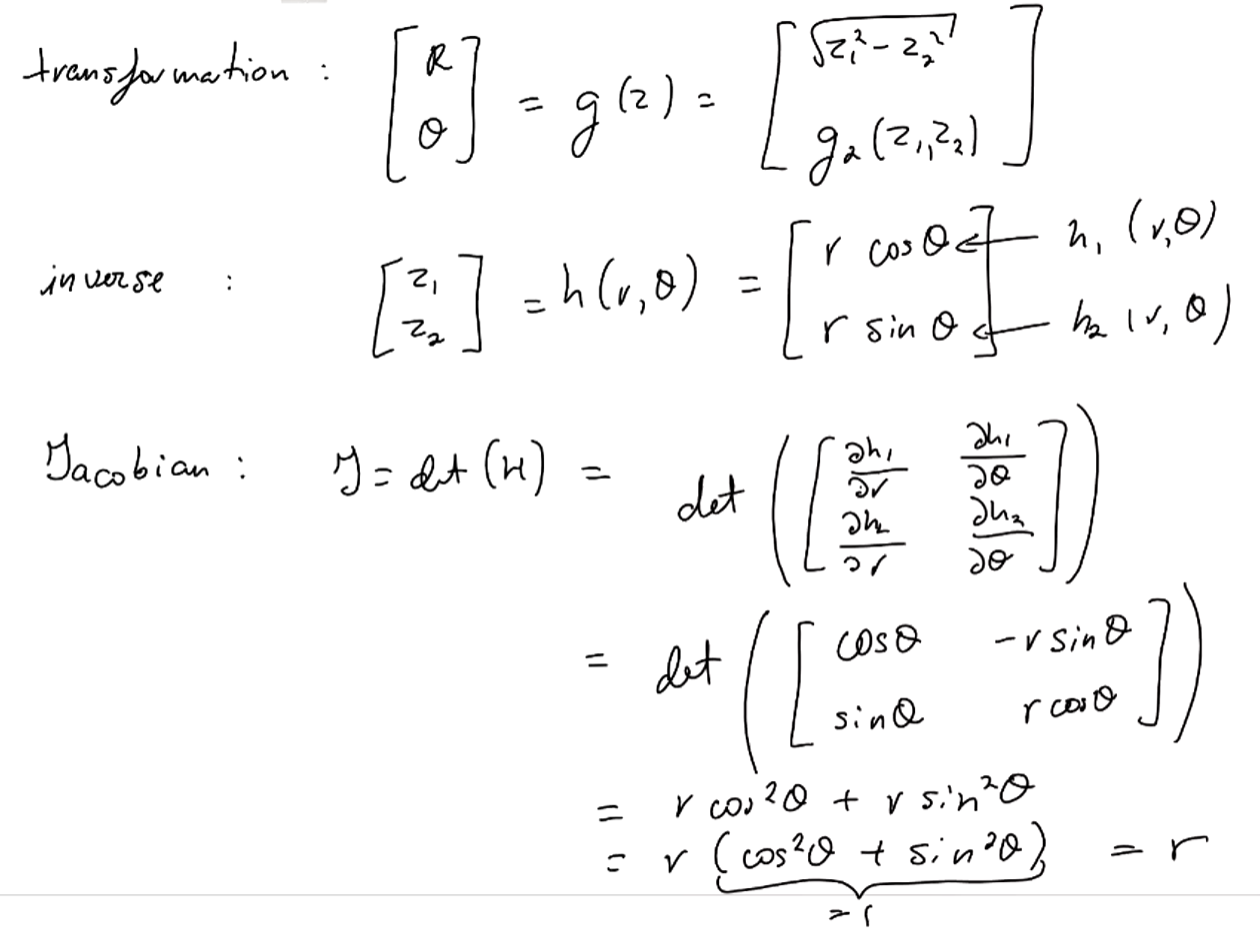 transformation : [R; θ] = g(z) = [√(z₁² - z₂²); g₂(z₁,z₂)]
inverse : [z₁; z₂] = h(r,θ) = [r cos θ; r sin θ] ← h₁ (r,θ) ← h₂ (r, θ)
Jacobian : J = det (H) = det ([∂h₁/∂r ∂h₁/∂θ; ∂h₂/∂r ∂h₂/∂θ])
= det ([cosθ -r sinθ; sinθ r cosθ])
= r cos²θ + r sin²θ
= r (cos²θ + sin²θ) = r
=1